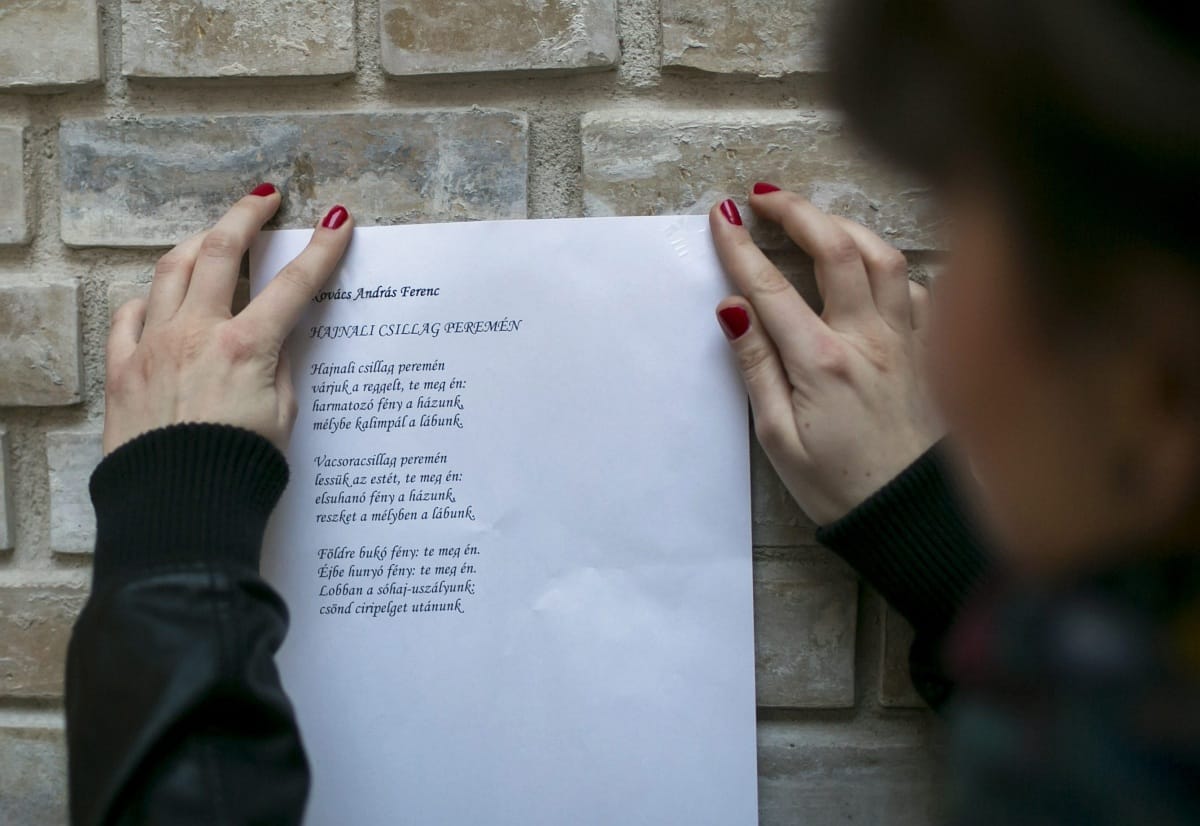 Kovács András Ferenc
HAJNALI CSILLAG PEREMÉN
Hajnali csillag peremén
várjuk a reggelt, te meg én:
harmatozó fény a házunk,
mélybe kalimpál a lábunk.
Vacsoracsillag peremén
lessük az estét, te meg én:
elsuhanó fény a házunk,
reszket a mélyben a lábunk.
Földre bukó fény: te meg én.
Éjbe hunyó fény: te meg én.
Lobban a sóhaj-uszályunk:
csönd ciripelget utánunk